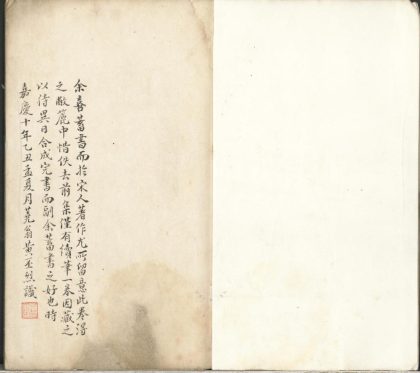 余喜蓄書而於宋人著作尤所留意此卷得
之敝簏中惜佚去前集僅有續筆一卷因藏之
以待異日合成完書而副余蓄書之好也時
嘉慶十年乙丑孟夏月蕘翁黃丕烈識